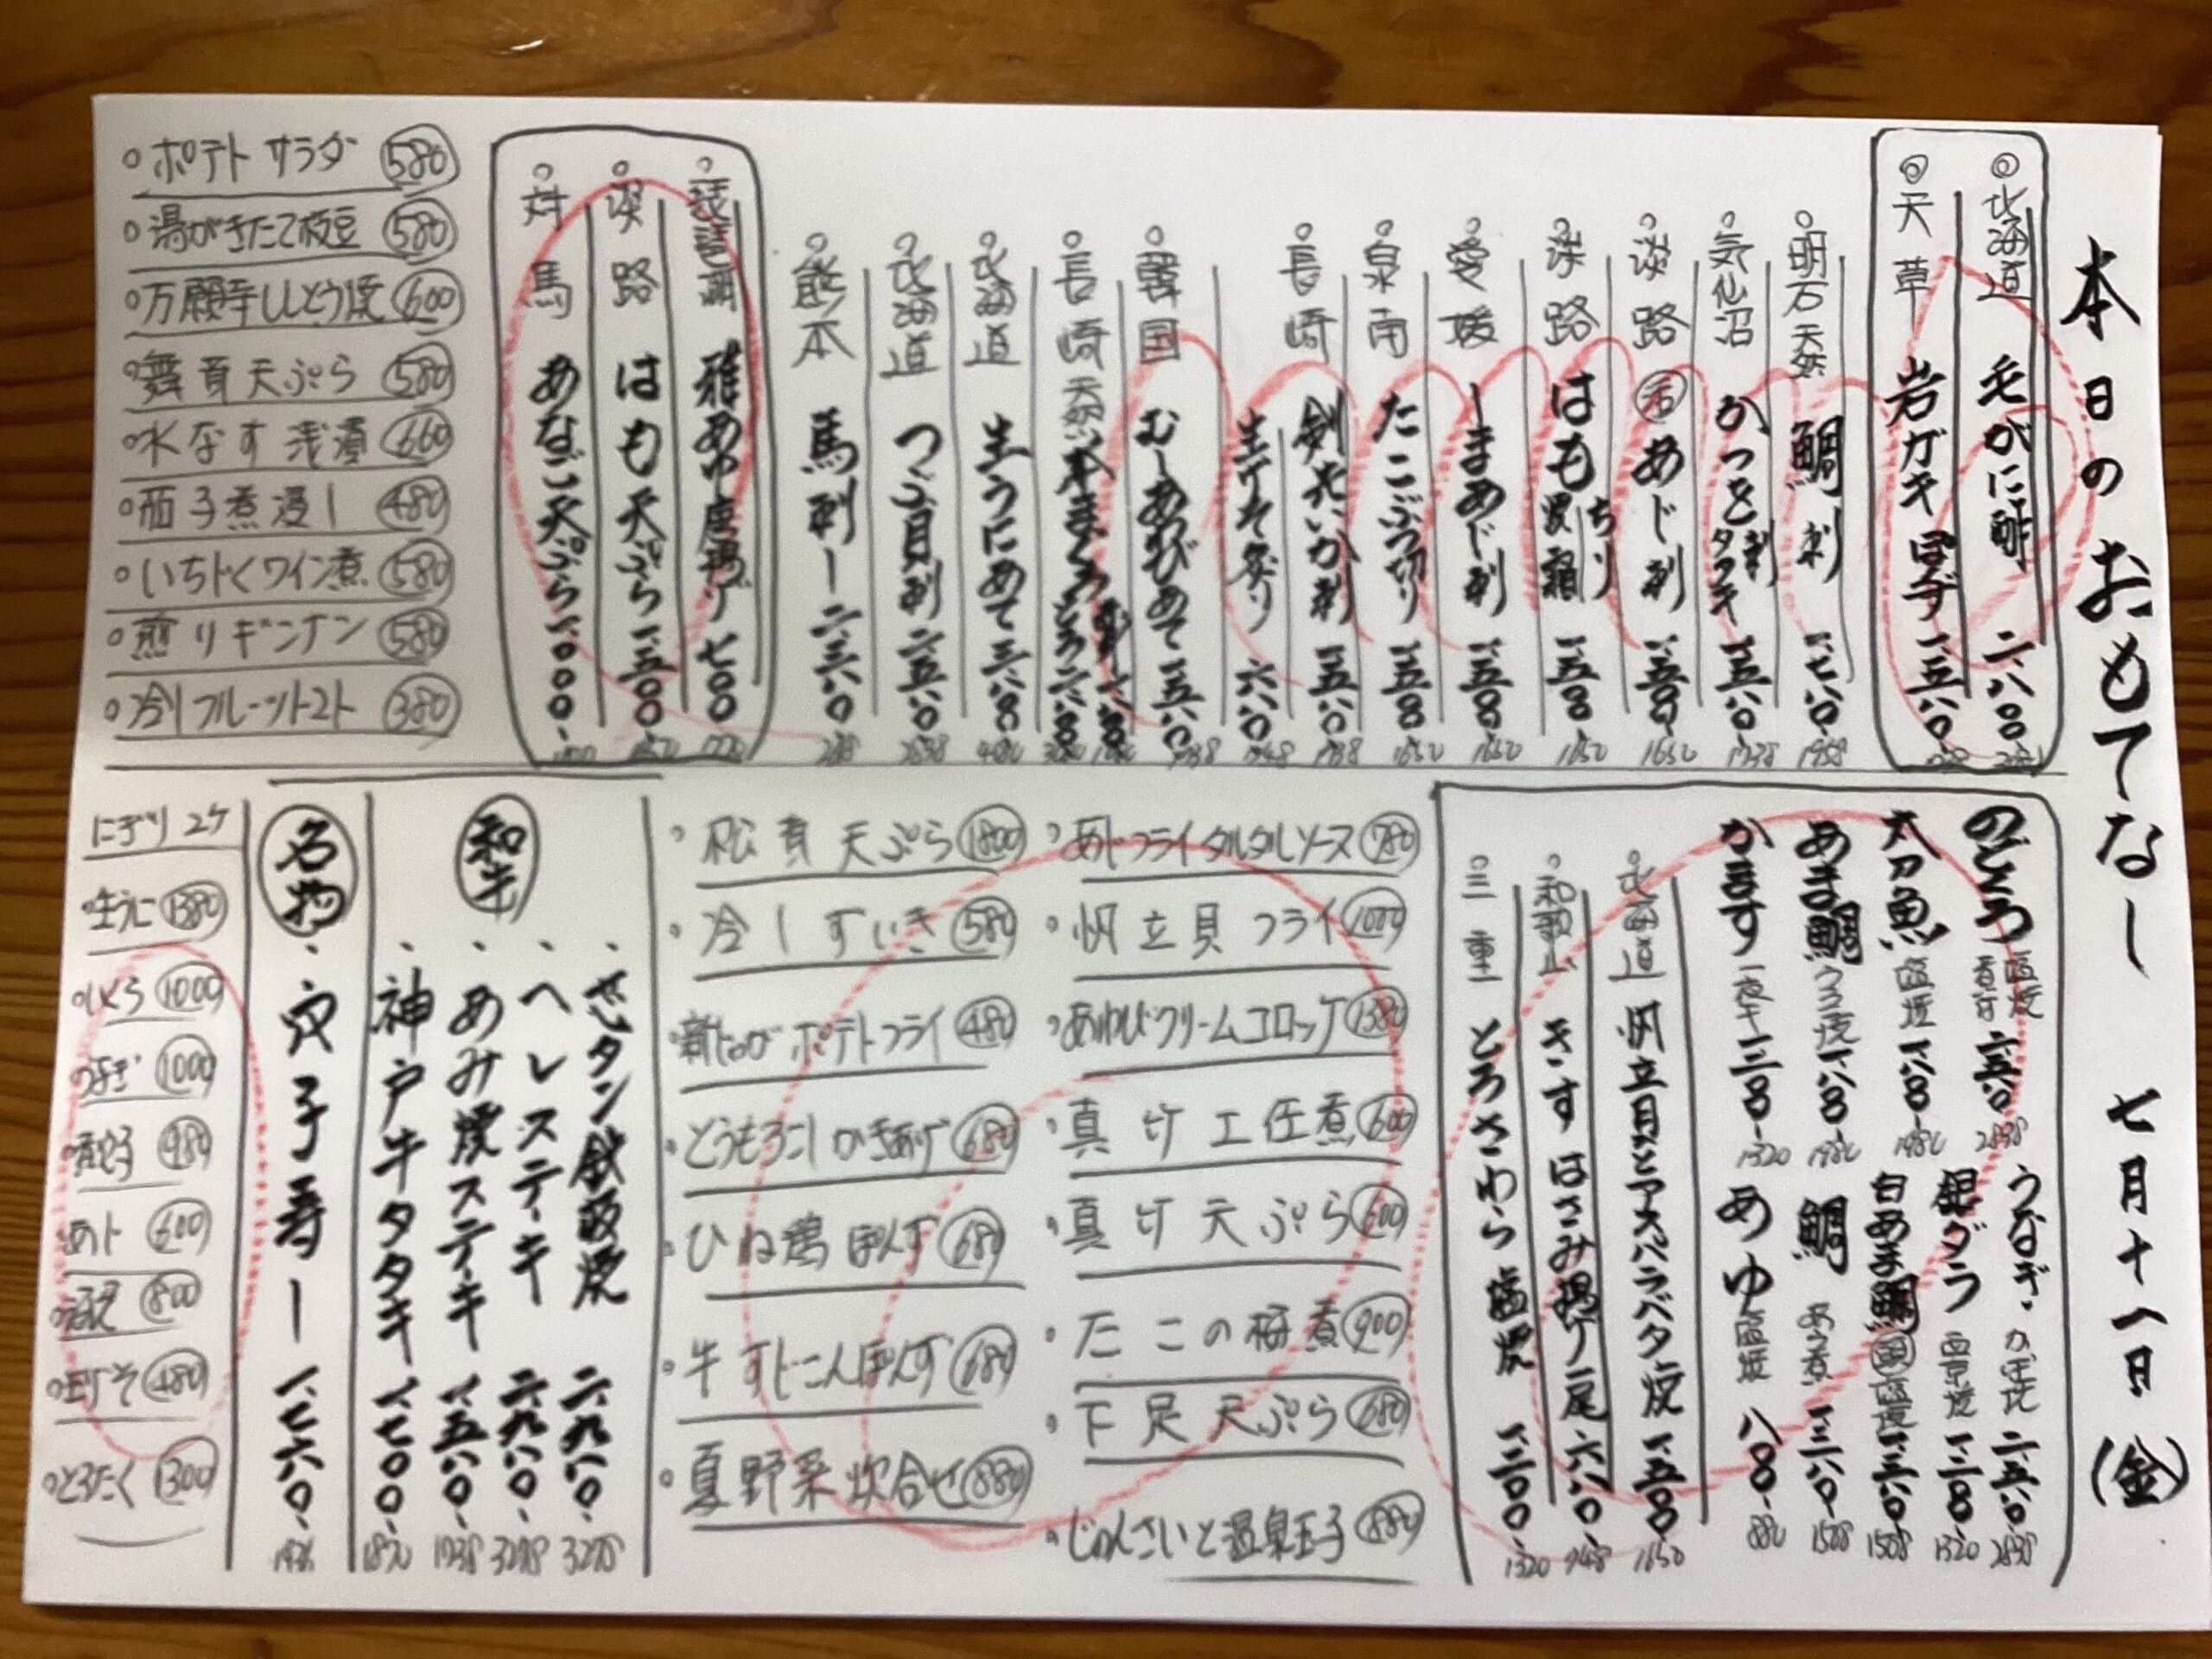 本日のおもてなし 七月十八日(金)
◎北海道 毛がに酢 二、八〇〇
◎天草 岩ガキぽず 一、五八〇
明石天然 鯛刺 一、七八〇 1958
気仙沼 かつを刺 タタキ 一、五八〇 1738
淡路 活あじ刺 一、五〇〇 1650
淡路 はも ちり 一、五〇〇 1650
愛媛 しまあじ刺 一、五〇〇 1650
泉南 たこぶつ切り 一、五〇〇 1650
長崎 剣先いか刺 一、五八〇 1738
生げそ炙り 八六〇
韓国 むしあわびあて 一、五八〇
長崎 天然本まぐろ とろ
北海道 生うにあて
北海道 つぶ貝刺 二、五八〇 2838
熊本 馬刺し 二、三八〇
琵琶湖 稚あゆ唐揚げ 七〇〇
淡路 はも天ぷら 一、五〇〇
対馬 あなご天ぷら 一、〇〇〇
ポテトサラダ 580
湯がきたて枝豆 580
万願寺ししとう焼 600
舞茸天ぷら 580
水なす浅漬 660
茄子煮浸し 480
いちじくワイン煮 580
煎りギンナン 580
冷しフルーツトマト 380
のどぐろ 塩焼 煮付 2838
太刀魚 塩焼 一、八〇〇 1980
あま鯛 ウロコ焼 一、八〇〇 1980
かます 一夜干 一、二〇〇 1320
うなぎ かば焼 二、五八〇 2838
銀ダラ 西京焼 一、二〇〇 1320
白あま鯛 塩焼 1508
鯛 あら煮 1508
あゆ 塩焼 八〇〇 880
北海道 帆立貝とアスパラバター焼 一、五〇〇 1650
和歌山 きす はさみ揚げ二尾 八六〇
三重 とろさわら 塩焼 一、二〇〇 1320
あじフライタルタルソース 780
帆立貝フライ 1000
あわびクリームコロッケ 1380
真竹土佐煮 600
真竹天ぷら 600
たこの梅煮 900
下足天ぷら 680
じゅんさいと温泉玉子 880
松茸天ぷら 1800
冷しずいき 580
新じゃがポテトフライ 480
とうもろこしかきあげ 680
ひね鶏ぽんず 680
牛すじこんぽんず 680
夏野菜炊合せ 880
和牛
芯タン鉄板焼 二、九八〇 3278
ヘレステーキ 二、九八〇 3278
あみ焼ステーキ 一、五八〇 1738
神戸牛タタキ 一、七〇〇 1870
名物
穴子寿し 一、七六〇 1936
にぎり2ケ
生うに 1380
いくら 1000
うなぎ 1000
煮穴子 980
あじ 600
800
生げそ 480
とろたく 1300